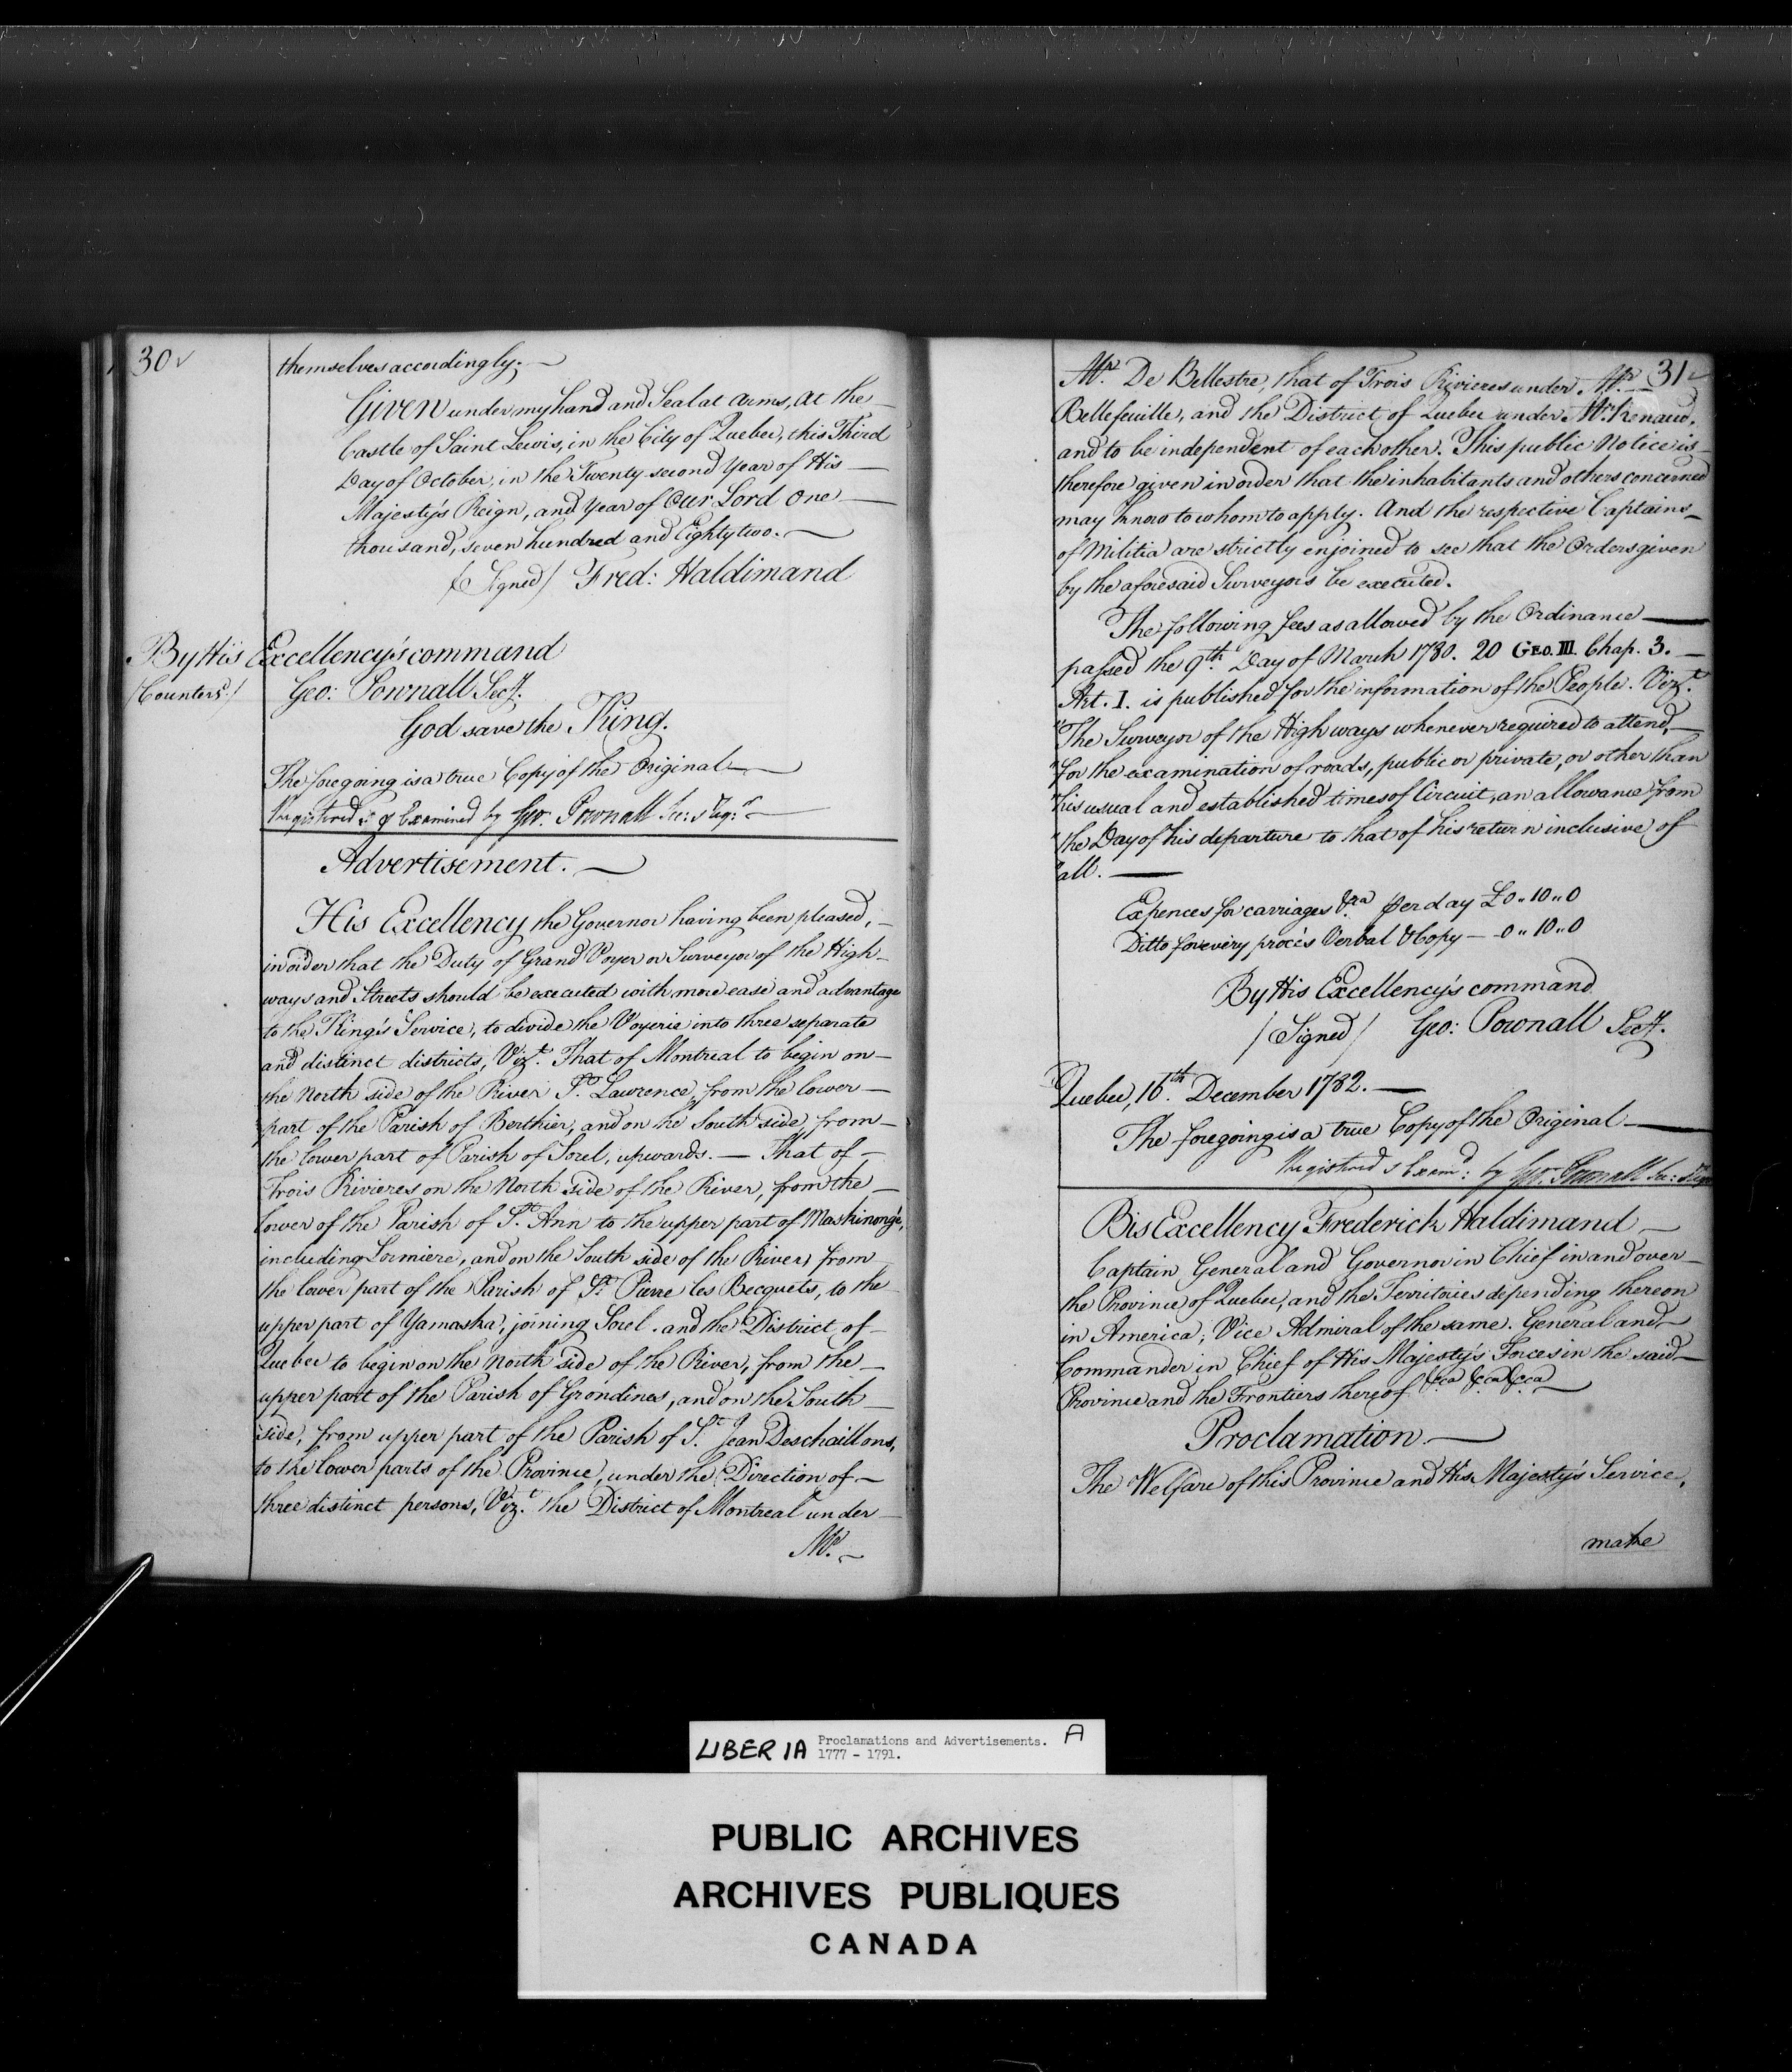 30
themselves accordingly.
Given under my hand and Seal at Arms, at the
Castle of Saint Lewis, in the City of Quebec, this Third
Day of October, in the Twenty second Year of His
Majesty's Reign, and Year of Our Lord One
thousand, seven hundred and Eighty two.
(Signed) Fred: Haldimand
By His Excellency's command
(Counters.d) Geo: Pownall Secy.
God save the King.
The foregoing is a true Copy of the Original
Registered & Examined by Geo: Pownall Sec: & Reg:r
Advertisement.
His Excellency the Governor having been pleased,
in order that the Duty of Grand Voyer or Surveyor of the High-
ways and Streets should be executed with more ease and advantage
to the King's Service, to divide the Voyerie into three separate
and distinct districts, Vizt. That of Montreal to begin on
the North side of the River St. Lawrence, from the lower
part of the Parish of Berthier, and on the South side, from
the lower part of Parish of Sorel, upwards. — That of
Trois Rivieres on the North side of the River, from the
lower of the Parish of St. Ann to the upper part of Maskinongé,
including Lormiere, and on the South side of the River, from
the lower part of the Parish of St. Pierre les Becquets, to the
upper part of Yamaska, joining Sorel. and the District of
Quebec to begin on the North side of the River, from the
upper part of the Parish of Grondines, and on the South
side, from upper part of the Parish of St. Jean Deschaillons,
to the lower parts of the Province, under the Direction of
three distinct persons, Vizt. the District of Montreal under
Mr.
31
Mr. De Bellestre, that of Trois Rivieres under Mr.
Bellefeuille, and the District of Quebec under Mr. Renaud,
and to be independent of each other. This public Notice is
therefore given in order that the inhabitants and others concerned
may know to whom to apply. And the respective Captains
of Militia are strictly enjoined to see that the Orders given
by the aforesaid Surveyors be executed.
The following fees as allowed by the Ordinance
passed the 9th. Day of March 1780. 20 Geo. III. Chap. 3.
Art. I. is published for the information of the People. Vizt.
"The Surveyor of the High ways whenever required to attend,
"for the examination of roads, public or private, or other than
"his usual and established times of Circuit, an allowance from
"the Day of his departure to that of his return inclusive of
"all.
Expences for carriages &ca per day £0..10..0
Ditto for every procés Verbal & Copy — 0..10..0
By His Excellency's command
(Signed) Geo: Pownall Secy.
Quebec, 16th. December 1782.
The foregoing is a true Copy of the Original
Registered & Exam:d by Geo: Pownall Sec: & Reg
His Excellency Frederick Haldimand
Captain General and Governor in Chief in and over
the Province of Quebec, and the Territories depending thereon
in America; Vice Admiral of the same. General and
Commander in Chief of His Majesty's Forces in the said
Province and the Frontiers thereof &ca &ca &ca
Proclamation
The Welfare of this Province and His Majesty's Service,
make
LIBER 1A Proclamations and Advertisements. A
1777 - 1791.
PUBLIC ARCHIVES
ARCHIVES PUBLIQUES
CANADA